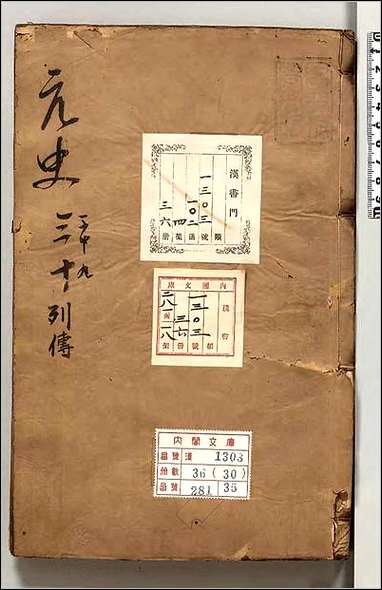 元史 三十 列傳
漢書門
類
一三〇三
號
一〇二
函
四
架
三六
冊
內閣文庫
漢書
一三〇三
號
三六
冊
內閣文庫
番號 漢 1303
冊數 36(30)
函號 281 35